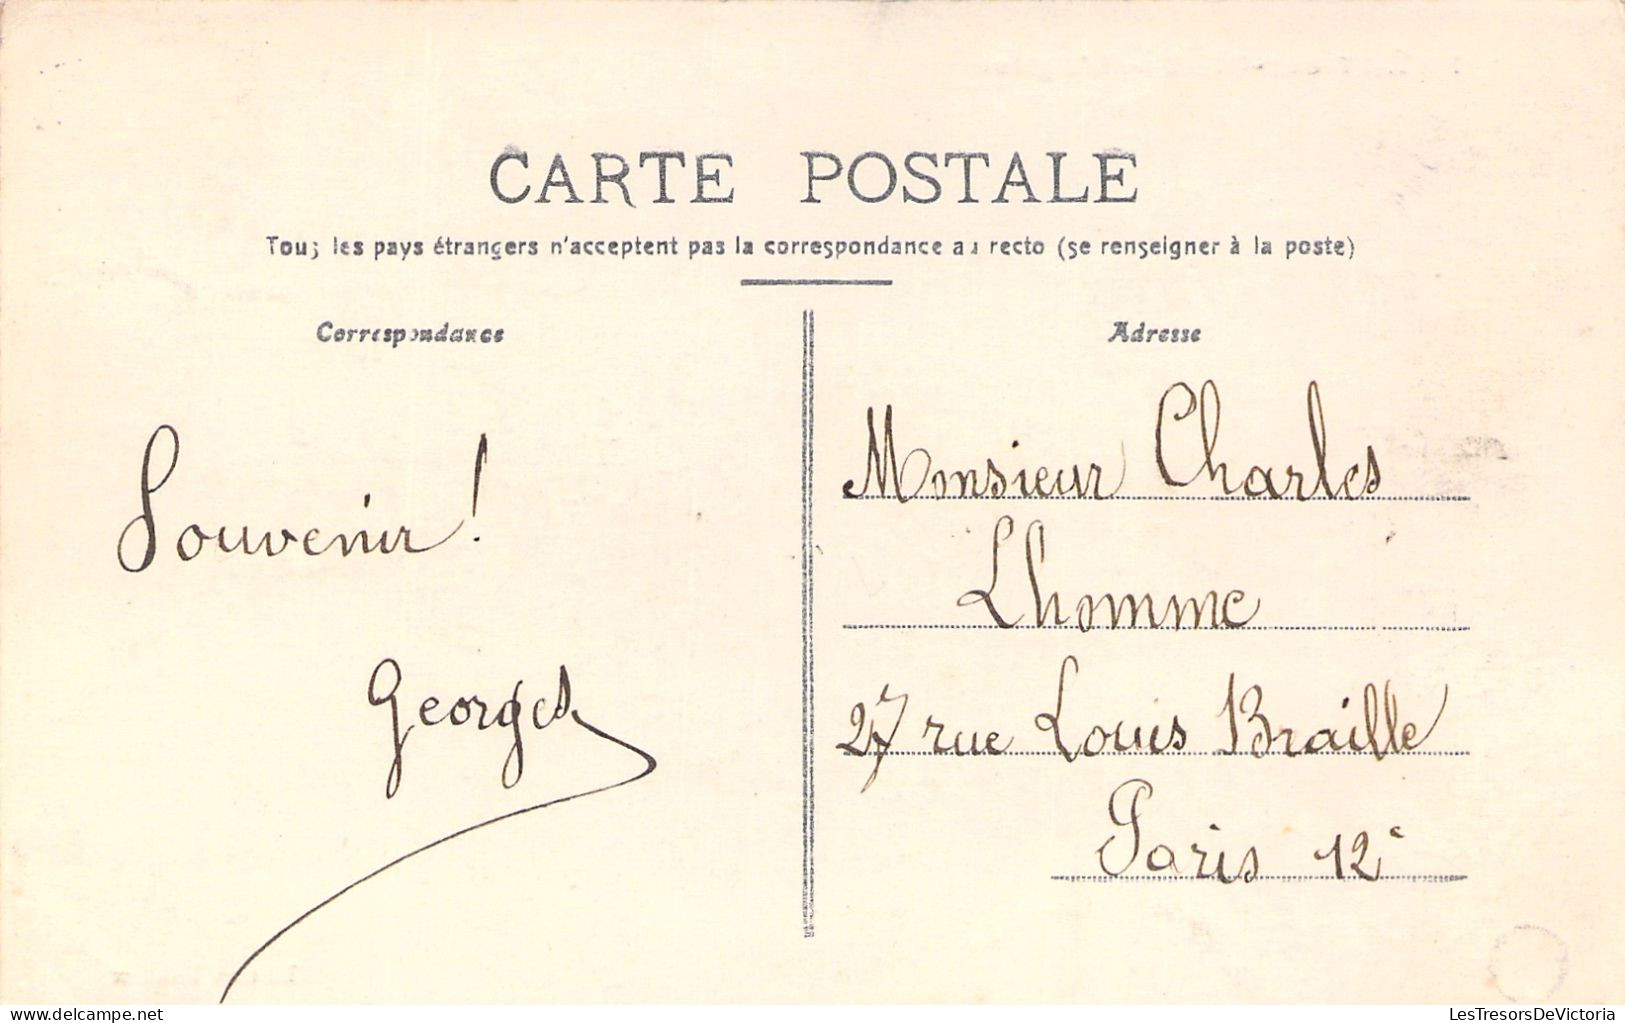 CARTE POSTALE
Tous les pays étrangers n'acceptent pas la correspondance au recto (se renseigner à la poste)
Correspondance
Adresse
Souvenir !
Georges
Monsieur Charles
Lhomme
27 rue Louis Braille
Paris 12e
delcampe.net
LesTresorsDeVictoria